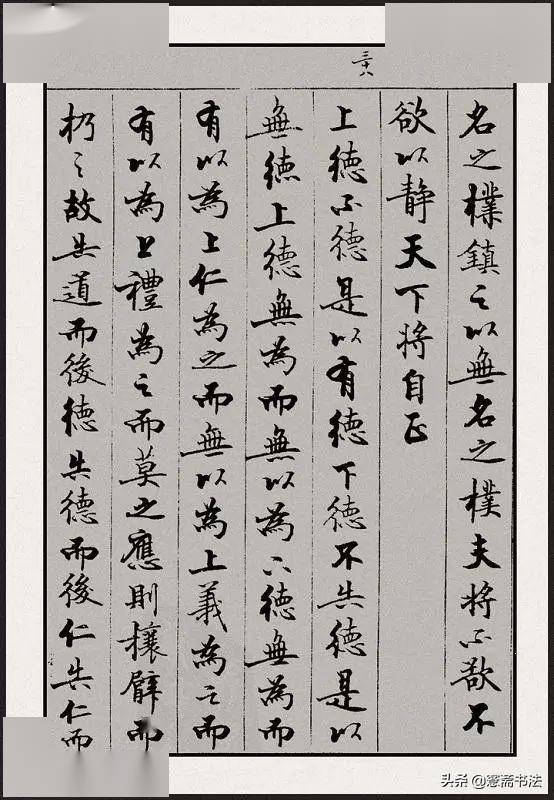 名之樸鎮之以無名之樸夫將不欲不
欲以靜天下將自正
三十八
上德不德是以有德下德不失德是以
無德上德無為而無以為下德無為而
有以為上仁為之而無以為上義為之而
有以為上禮為之而莫之應則攘臂而
扔之故失道而後德失德而後仁失仁而
头条 @斋书法